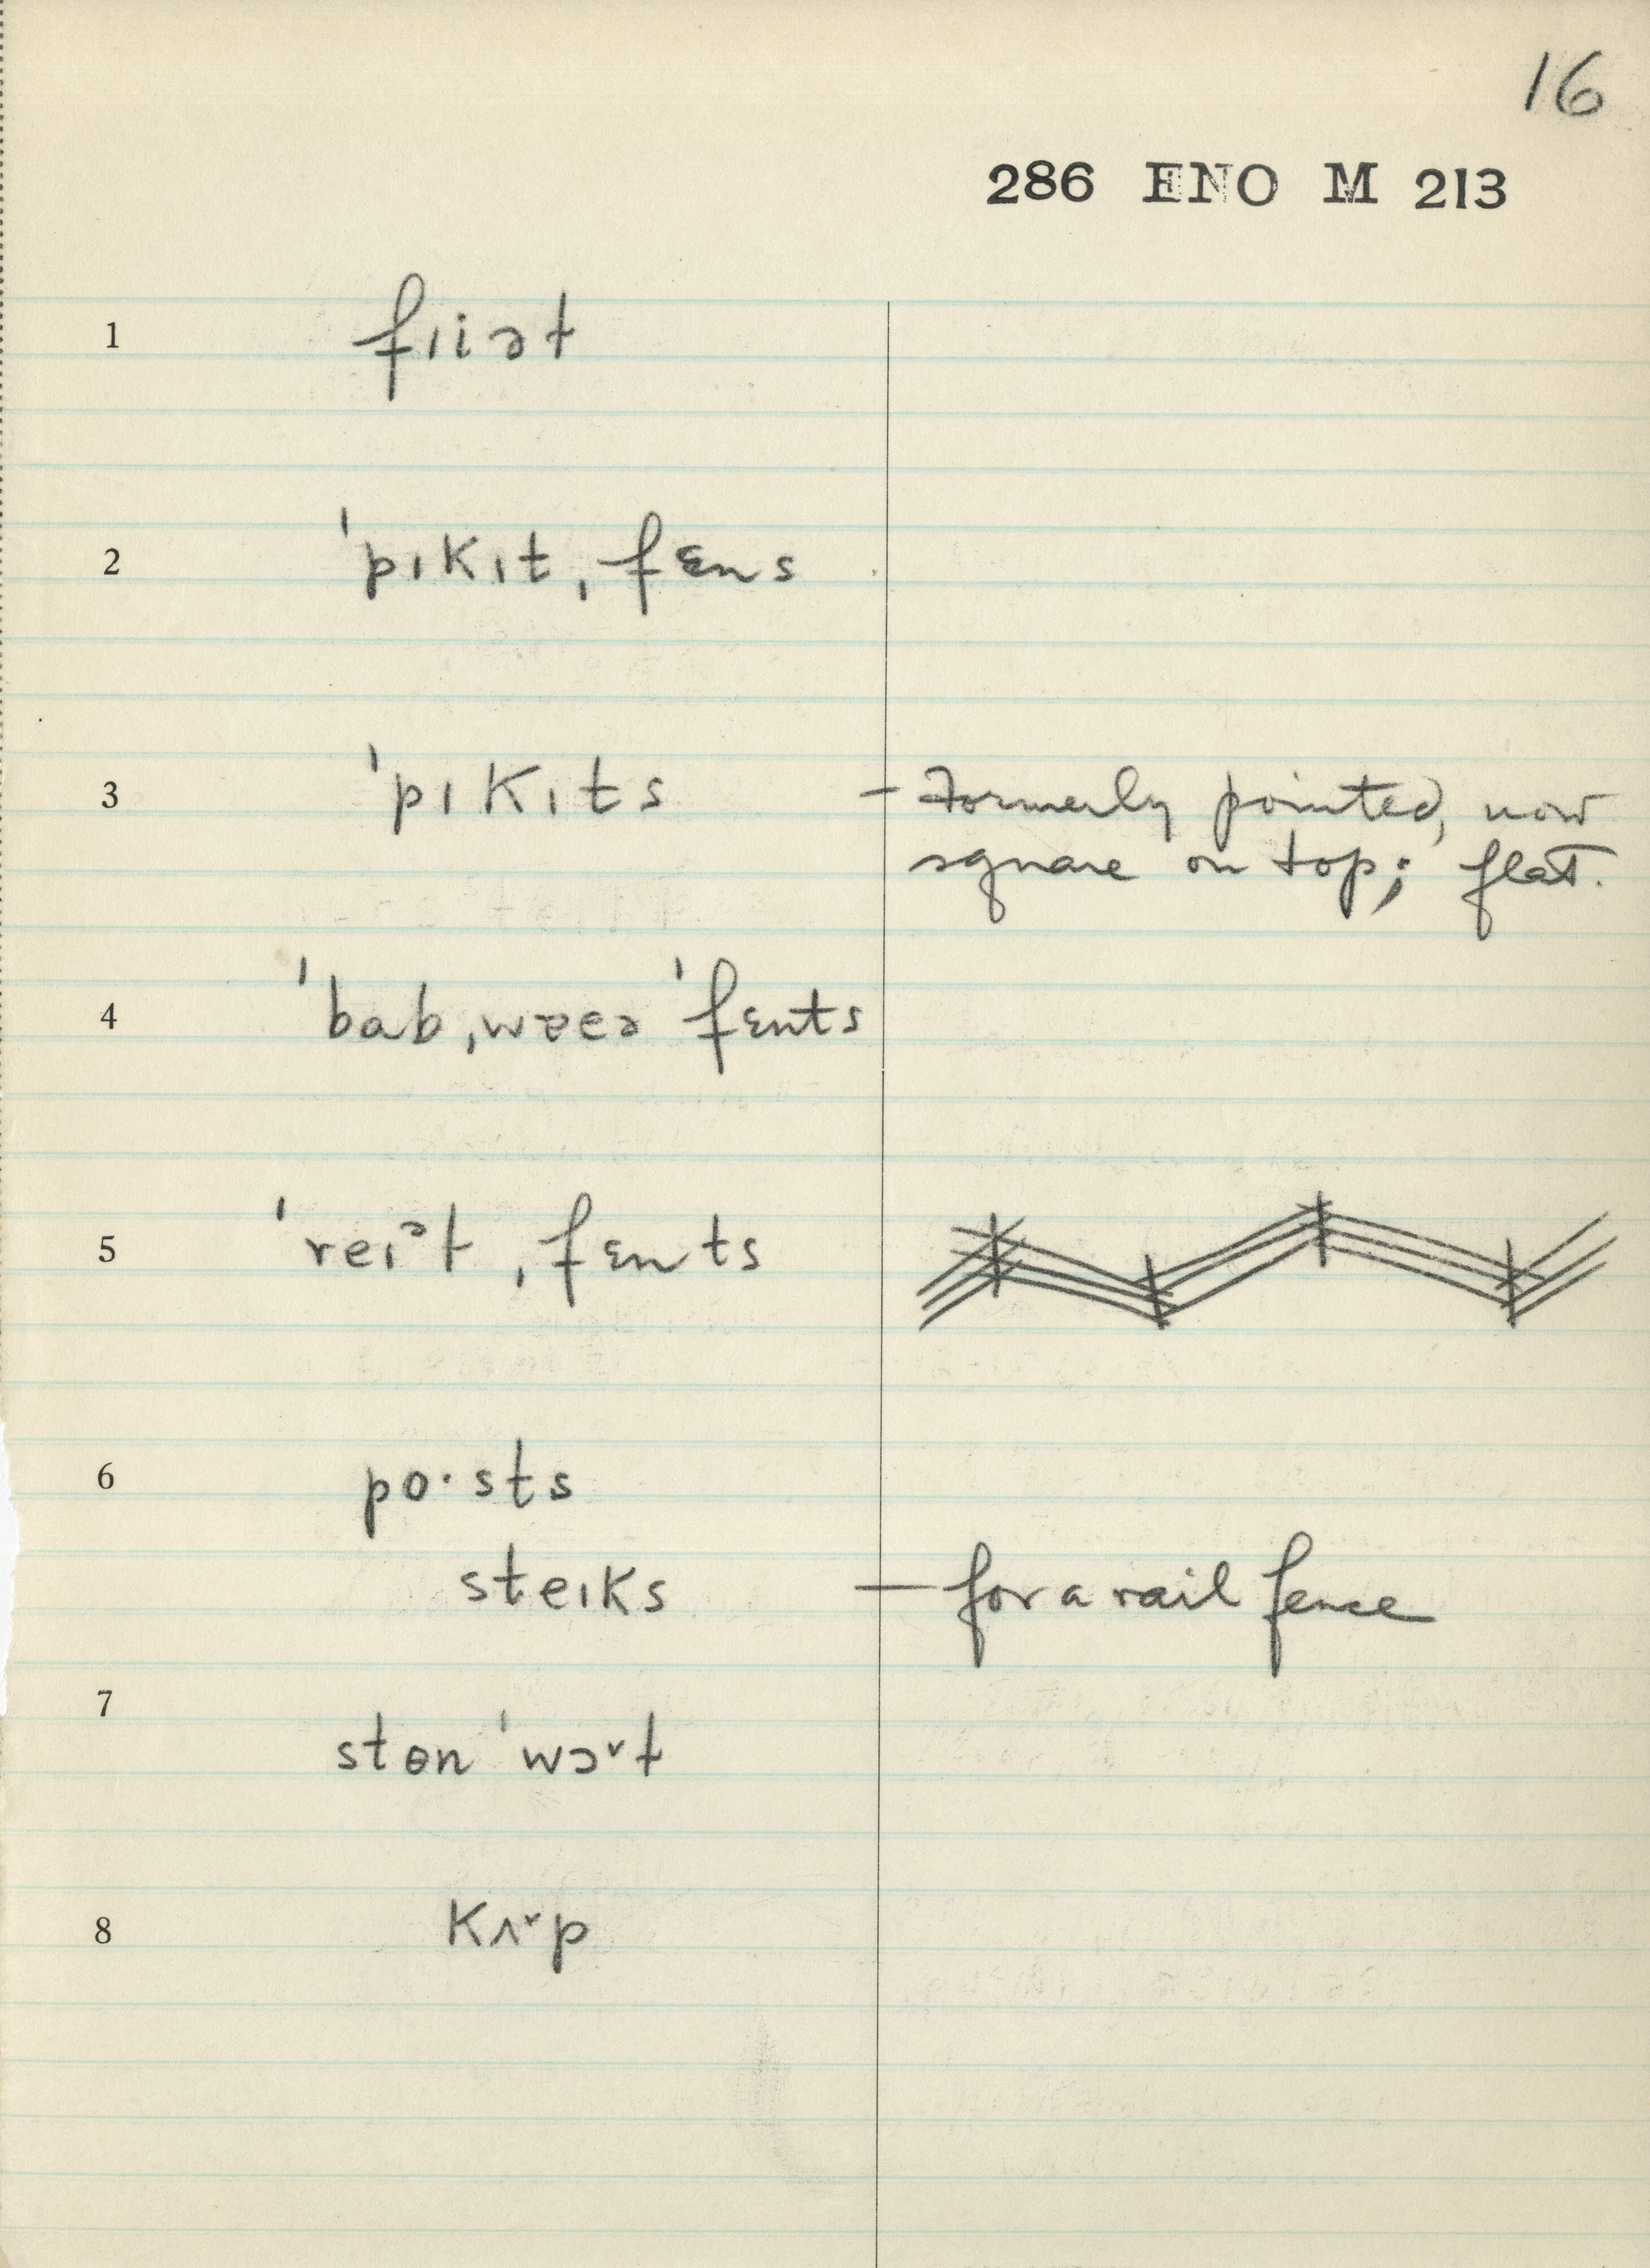 16
286 ENO M 213
1 fiiəɫ
2 ˈpɪkɪt ˌfɛns
3 ˈpɪkɪts – Formerly pointed, now
square on top; flat.
4 ˈbabˌwɐɛə ˈfɛnts
5 ˈreɪᵊɫ ˌfɛnts
6 po·sts
steɪks – for a rail fence
7 stɵn ˈwɔ˅ɫ
8 kʌ˅p